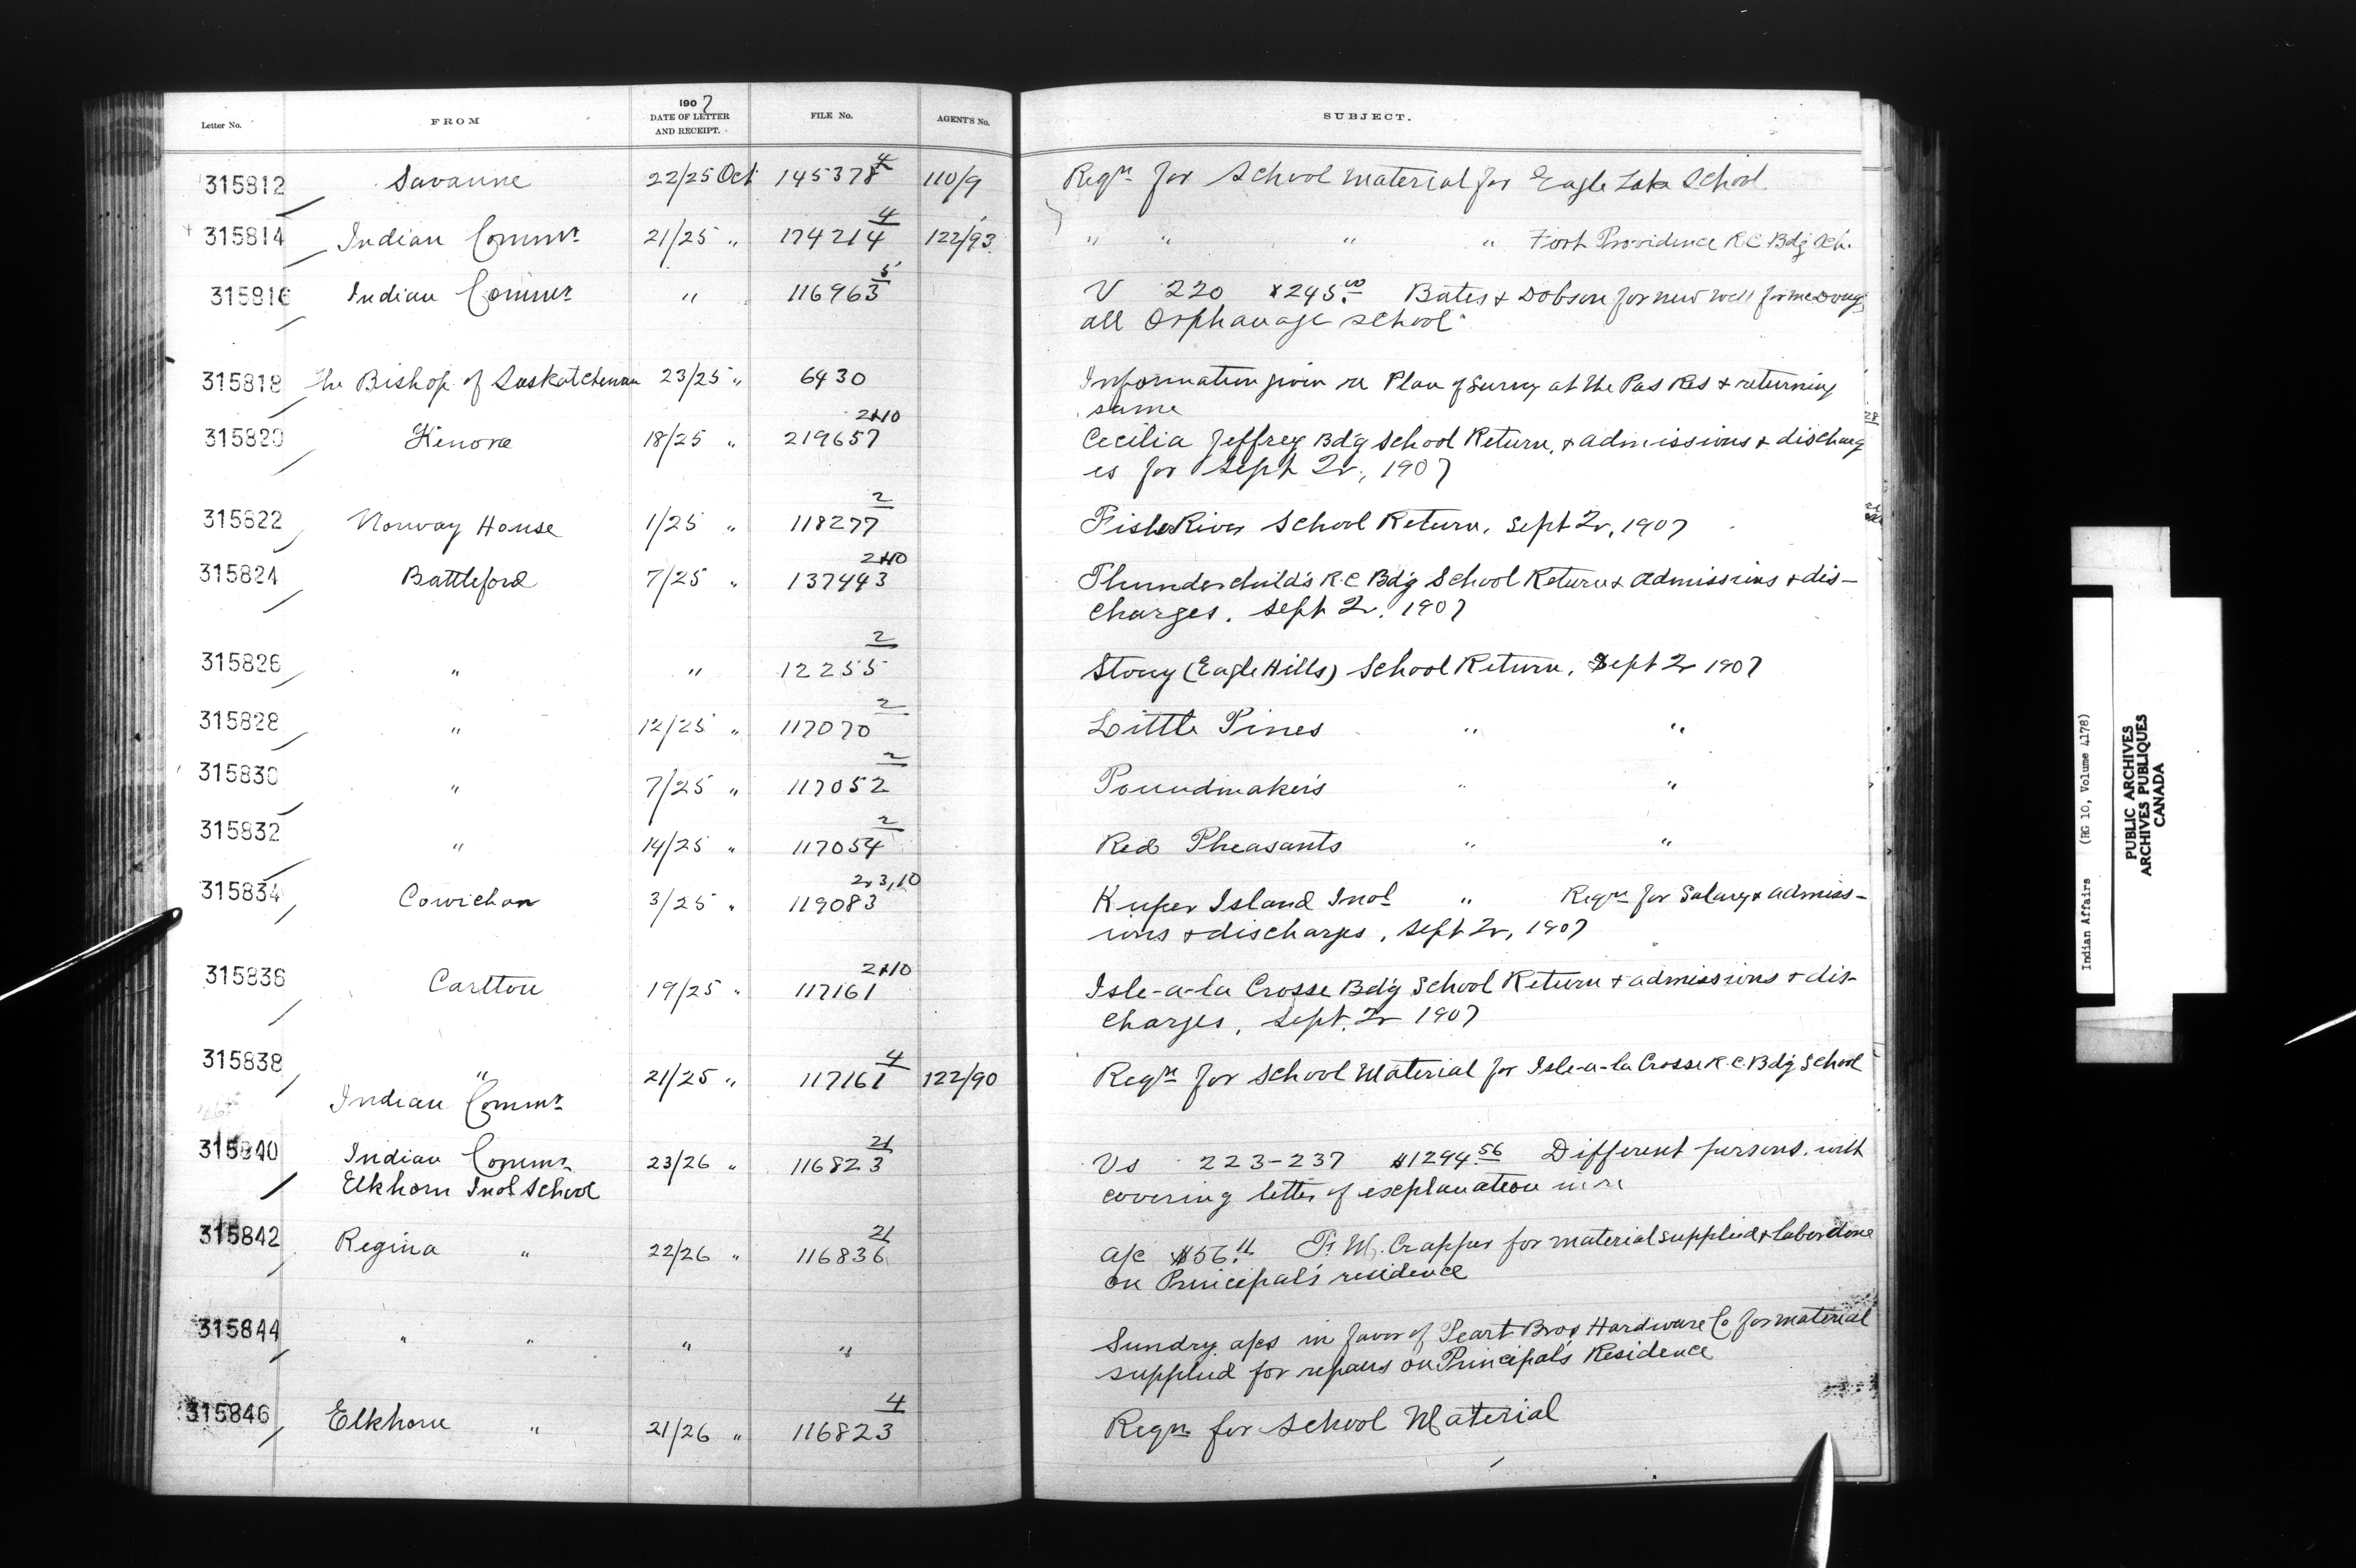 Letter No. FROM 1907 DATE OF LETTER AND RECEIPT. FILE No. AGENT'S No. SUBJECT.
315812 Savanne 22/25 Oct 145378 4 110/9 Reqn for School Material for Eagle Lake School
315814 Indian Commr 21/25 " 174214 4 122/93 " " " " Fort Providence R.C Bdg Sch.
315816 Indian Commr " 116963 5 V 220 $245.00 Bates & Dobson for new well for McDoug
all Orphanage School
315818 The Bishop of Saskatchewan 23/25 " 6430 Information given re Plan of Survey at the Pas Res & returning
same
315820 Kenora 18/25 " 219657 2&10 Cecilia Jeffrey Bdg School Return, & admissions & discharg
es for Sept Qr, 1907
315822 Norway House 1/25 " 118277 2 Fisher River School Return, Sept Qr, 1907
315824 Battleford 7/25 " 137443 2&10 Thunderchild's R.C Bdg School Return & admissions & dis-
charges, Sept Qr. 1907
315826 " " 12255 2 Stony (Eagle Hills) School Return, Sept Qr 1907
315828 " 12/25 " 117070 2 Little Pines " "
315830 " 7/25 " 117052 2 Poundmaker's " "
315832 " 14/25 " 117054 2 Red Pheasants " "
315834 Cowichan 3/25 " 119083 2,3,10 Kuper Island Indl " Reqn for Salary & admiss-
ions & discharges, Sept Qr, 1907
315836 Carlton 19/25 " 117161 2&10 Isle-a-la Crosse Bdg School Return & admissions & dis-
charges, Sept. Qr 1907
315838 " 21/25 " 117161 4 122/90 Reqn for School Material for Isle-a-la Crosse R.C. Bdg School
Indian Commr
315840 Indian Commr 23/26 " 116823 21 Vs 223-237 $1294.56 Different persons. with
Elkhorn Indl School covering letter of explanation in re
315842 Regina " 22/26 " 116836 21 a/c $56.11 F. M. Crapper for material supplied & labor done
on Principal's residence
315844 " " " " Sundry a/cs in favor of Peart Bros Hardware Co for material
supplied for repairs on Principal's Residence
315846 Elkhorn " 21/26 " 116823 4 Reqn for School Material
28
21
Indian Affairs (RG 10, Volume 4178)
PUBLIC ARCHIVES
ARCHIVES PUBLIQUES
CANADA